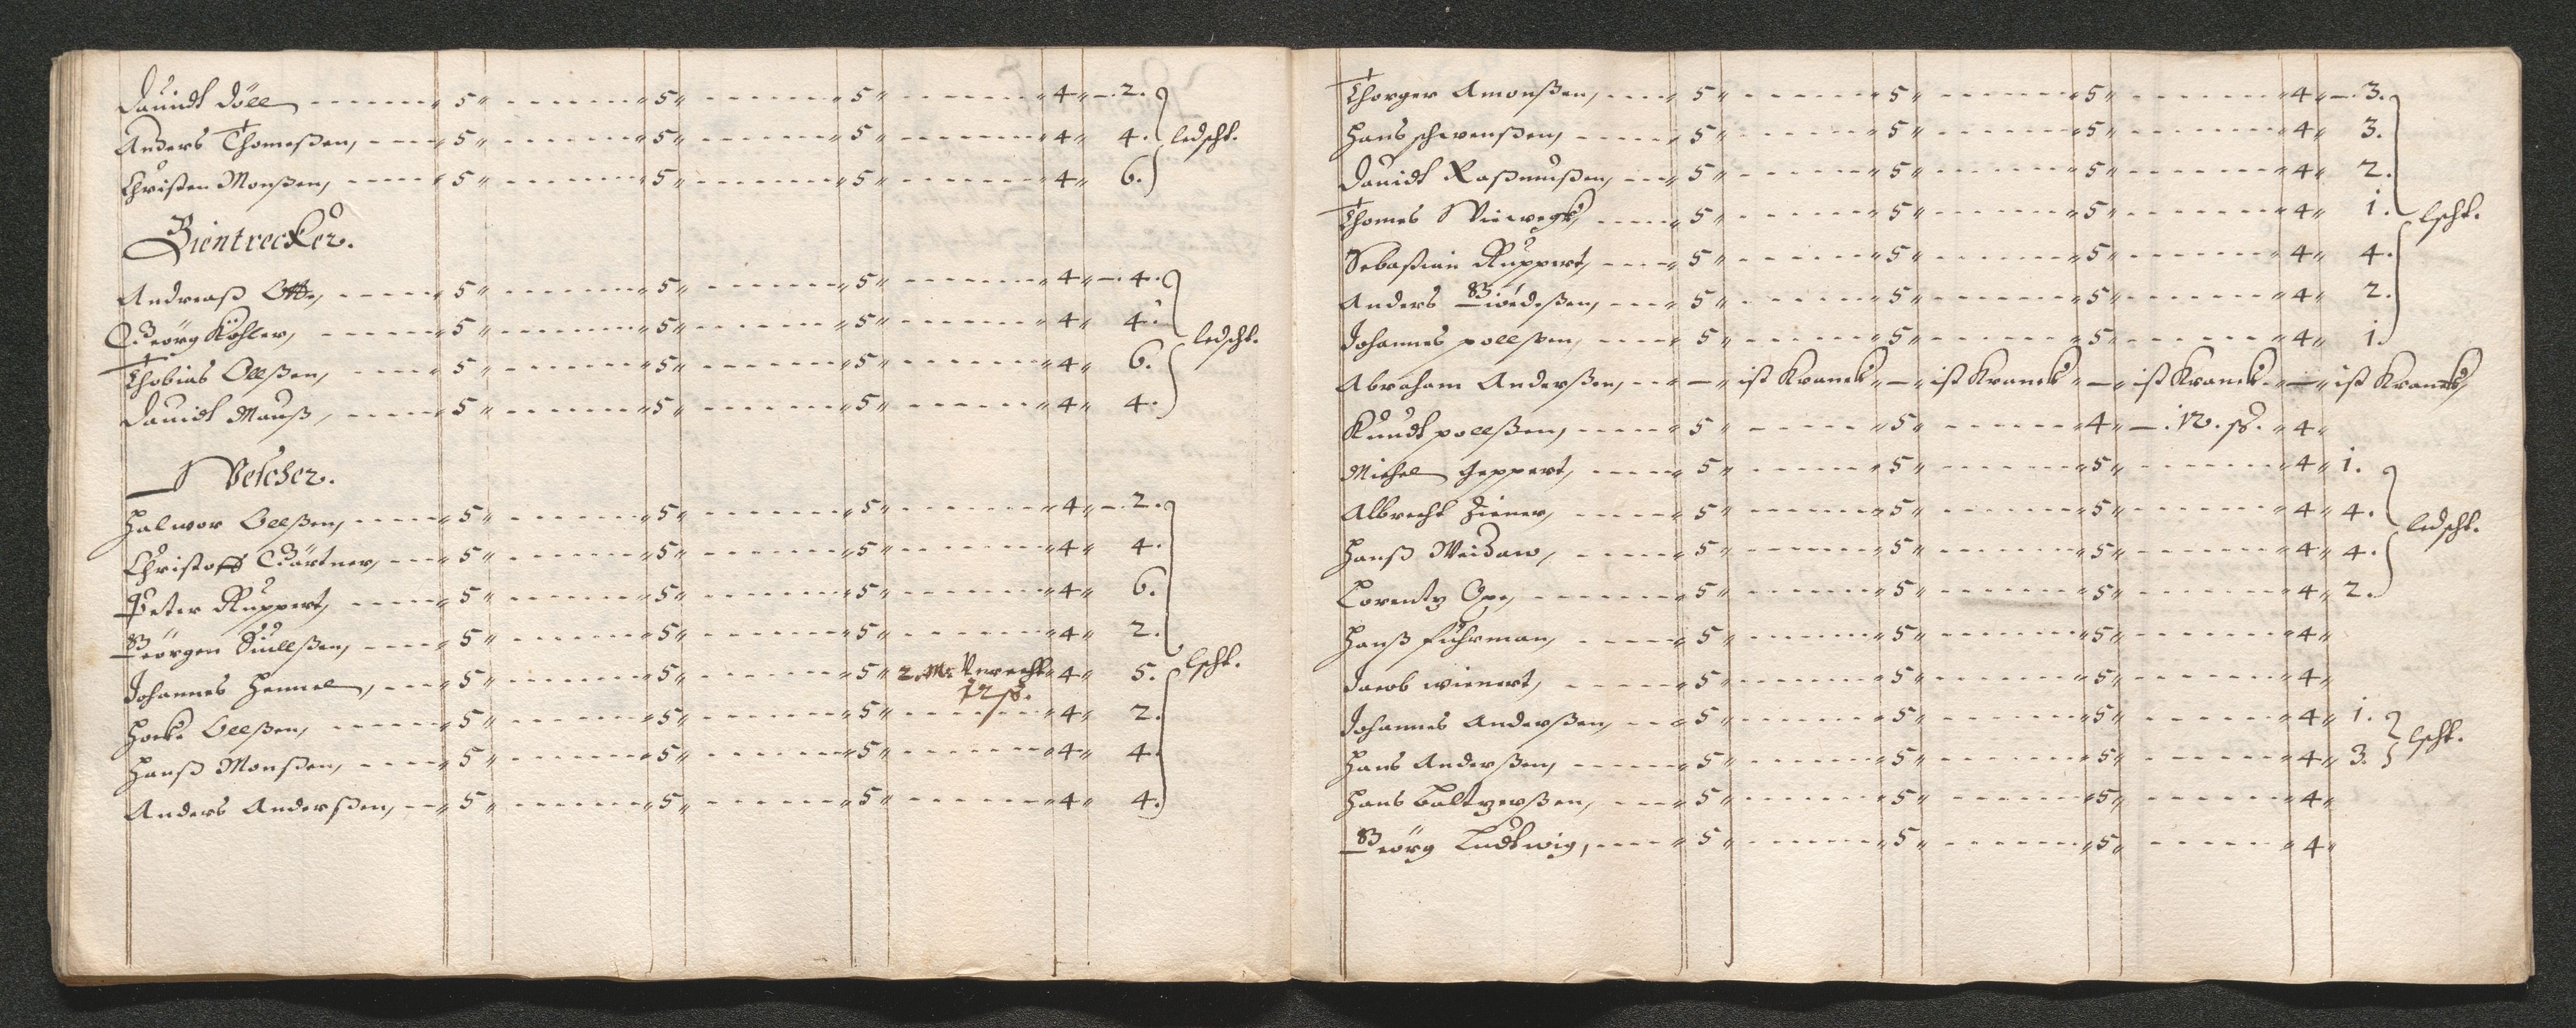 Dauidt Döll 5 5 5 4 2.
Anders Thomeßen, 5 5 5 4 4. ledscht.
Christen Monßen, 5 5 5 4 6.
Zientrecker.
Andreaß Otto, 5 5 5 4 4.
Georg Köhler, 5 5 5 4 4. ledscht.
Thobias Ollßen, 5 5 5 4 6.
Dauidt Mauß, 5 5 5 4 4.
Wescher.
Halwor Ollßen, 5 5 5 4 2.
Christoff Gärtner, 5 5 5 4 4.
Peter Ruppert, 5 5 5 4 6.
Görgen 5 5 5 4 2.
Johannes Hemmel, 5 5 5 2. Mr. Knecht 4 5. lscht.
12 ß.
Ollßen, 5 5 5 4 2.
Hanß Monßen, 5 5 5 4 4.
Anders Anderßen, 5 5 5 4 4.
Thorger Amonßen, 5 5 5 4 3.
Hans schwenßen, 5 5 5 4 3.
Dauidt Raßmußen, 5 5 5 4 2.
Thomes Viewegk, 5 5 5 4 1. lscht.
Sebastian Ruppert, 5 5 5 4 4.
Anders 5 5 5 4 2.
Johannes pollßen, 5 5 5 4 1.
Abraham Anderßen, – ist Kranck – ist Kranck – ist Kranck – ist Kranck
Knudt pollßen, 5 5 4 12. ß. 4
Michel Geppert, 5 5 5 4 1.
Albrecht Ziener, 5 5 5 4 4. ledscht.
Hanß Weidaw, 5 5 5 4 4.
Lorentz Ope, 5 5 5 4 2.
Hanß fuhrman, 5 5 5 4
Jacob wienert, 5 5 5 4
Johannes Anderßen, 5 5 5 4 1.
Hans Anderßen, 5 5 5 4 3. lscht.
Hans Baltzerßen, 5 5 5 4
Georg Ludtwig, 5 5 5 4